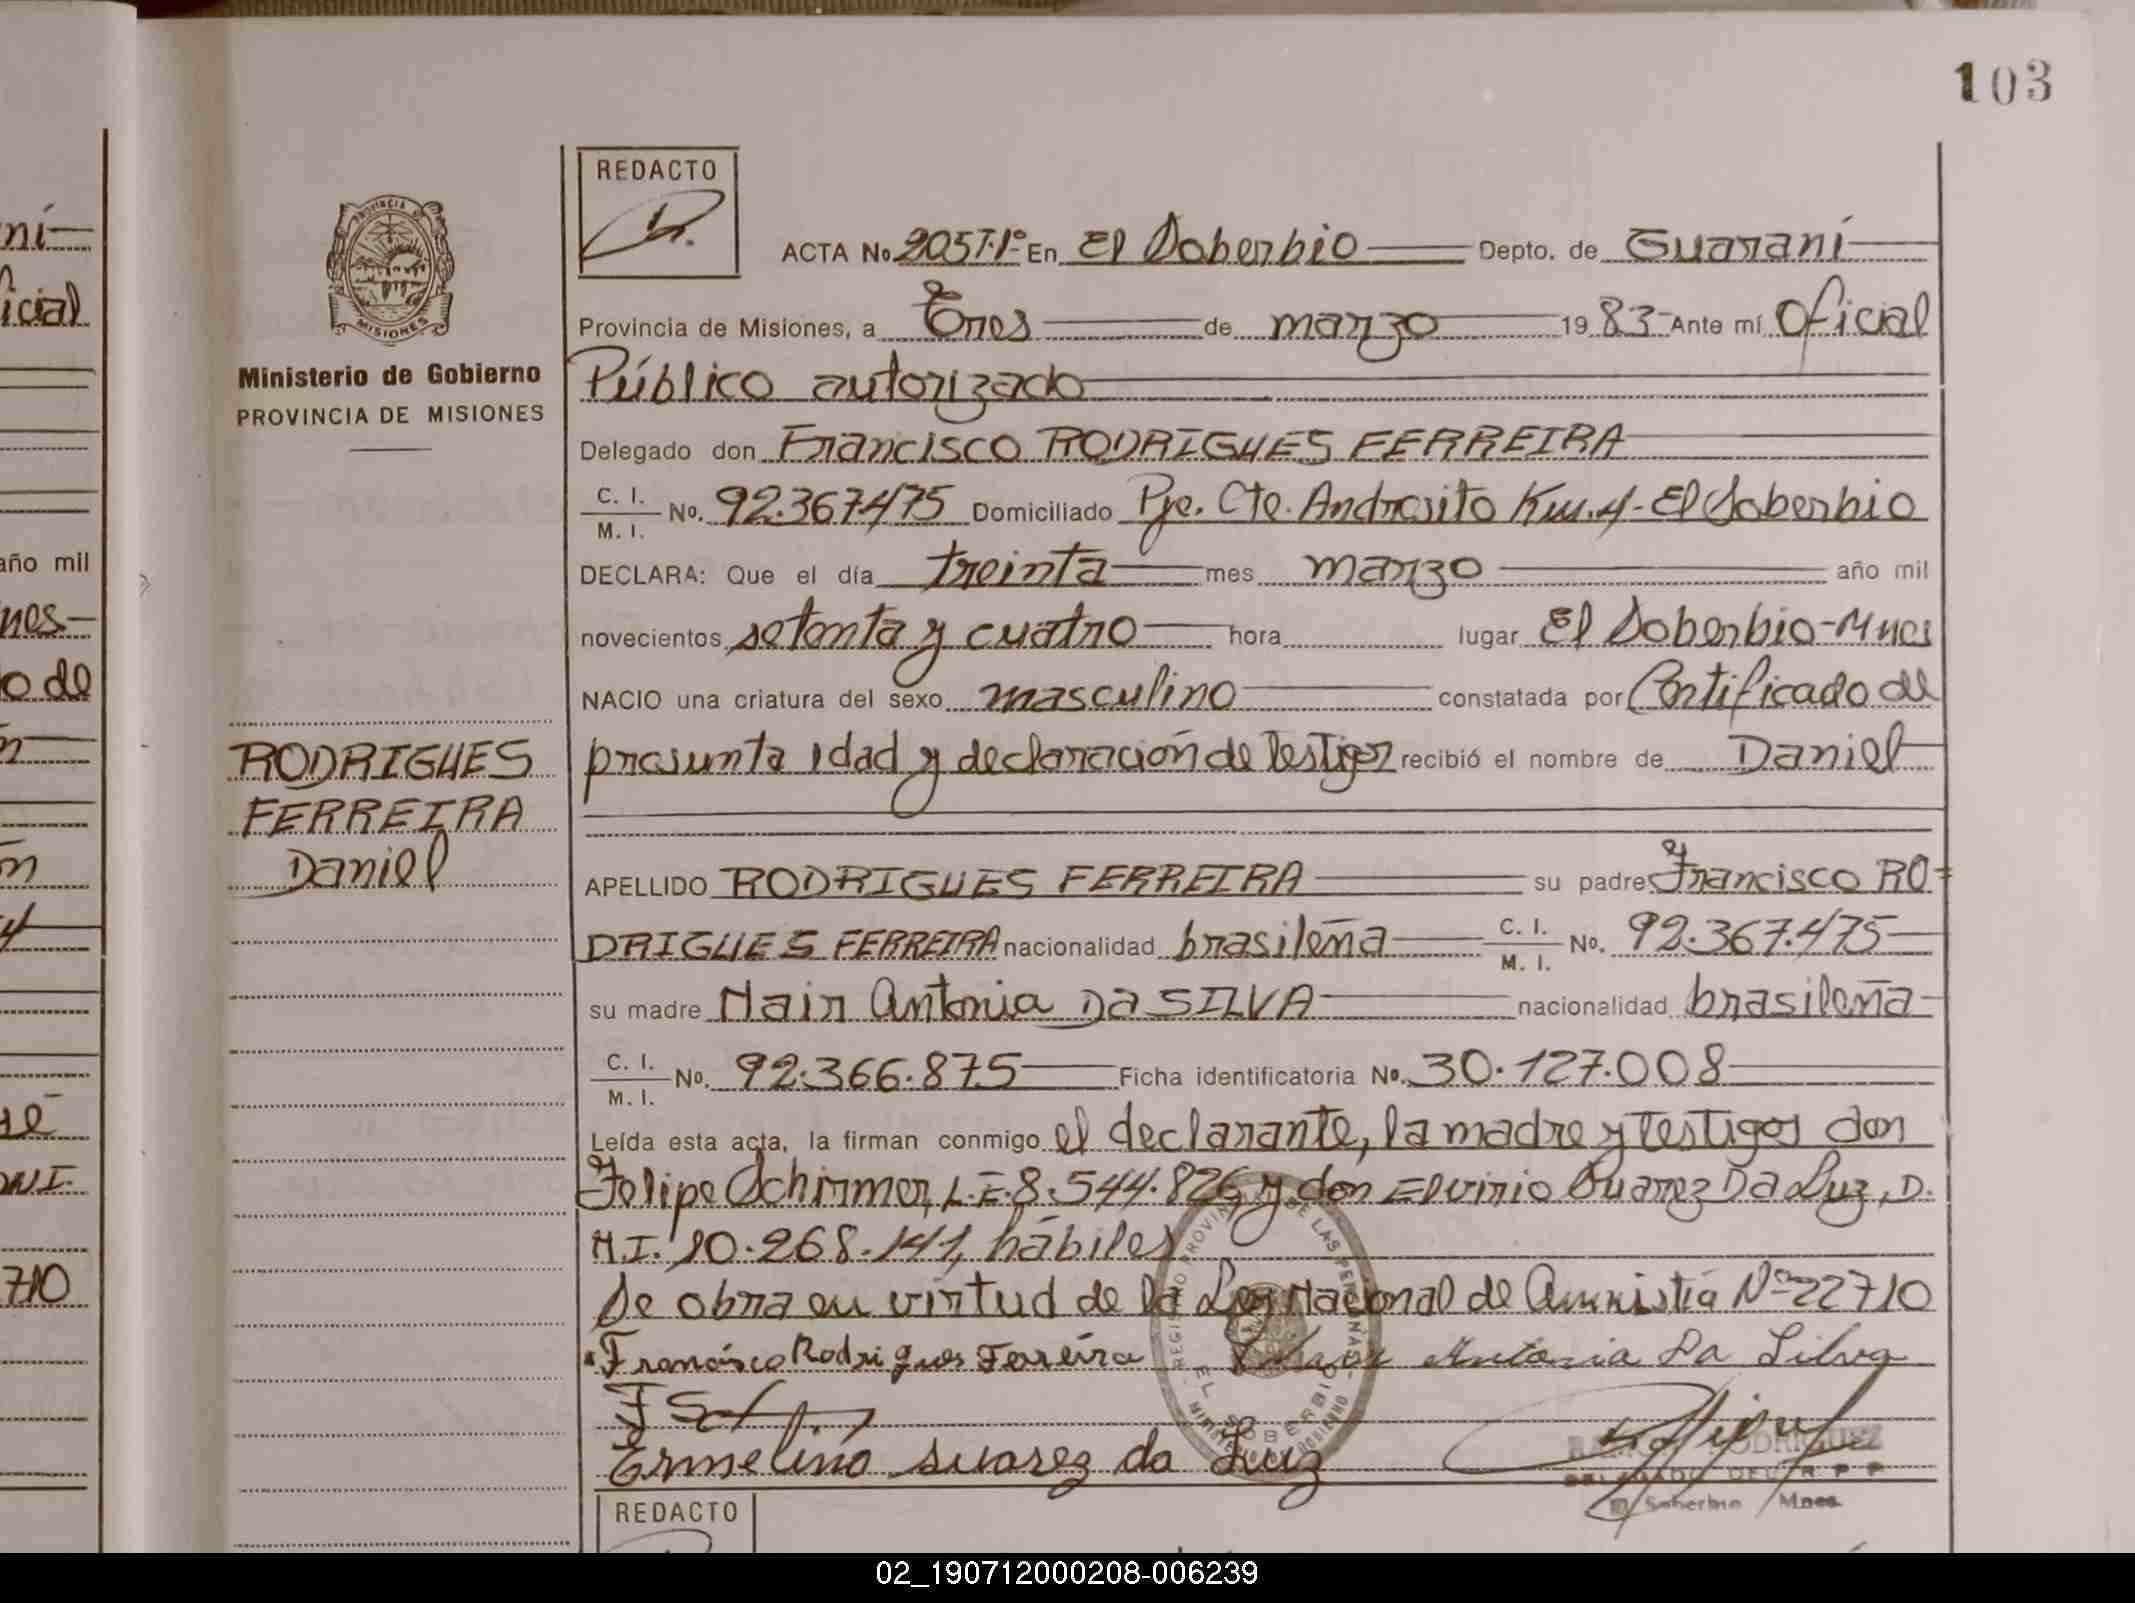 103
REDACTO
ACTA No 205 T.1º En El Soberbio Depto. de Guaraní
Provincia de Misiones, a Tres de marzo 19 83 Ante mí Oficial
Público autorizado
Delegado don Francisco RODRIGUES FERREIRA
C. I. M. I. No. 92.367.475 Domiciliado Pje. Cte. Andresito Km. 4 - El Soberbio
DECLARA: Que el día treinta mes marzo año mil
novecientos setenta y cuatro hora lugar El Soberbio - Mnes
NACIO una criatura del sexo masculino constatada por Certificado de
presunta edad y declaración de Testigos recibió el nombre de Daniel
APELLIDO RODRIGUES FERREIRA su padre Francisco RO-
DRIGUES FERREIRA nacionalidad brasileña C. I. M. I. No. 92.367.475
su madre Nair Antonia DA SILVA nacionalidad brasileña
C. I. M. I. No. 92.366.875 Ficha identificatoria No. 30.127.008
Leída esta acta, la firman conmigo el declarante, la madre y Testigos don
Felipe Schirmer, L.E. 8.544.826 y don Elvirio Suarez Da Luz, D.
N.I. 10.268.141, hábiles
Se obra en virtud de la Ley Nacional de Amnistía Nº 22710
Francisco Rodrigues Ferreira Antonia Da Silva
Ermelino suarez da Luz
REGISTRO PROVINCIAL DE LAS PERSONAS
EL SOBERBIO
MINISTERIO DE GOBIERNO
RODRIGUEZ
DELEGADO DEL R P P
El Soberbio Mnes.
REDACTO
PROVINCIA DE
MISIONES
Ministerio de Gobierno
PROVINCIA DE MISIONES
RODRIGUES
FERREIRA
Daniel
ní
icial
año mil
nes
o de
n
710
02_190712000208-006239